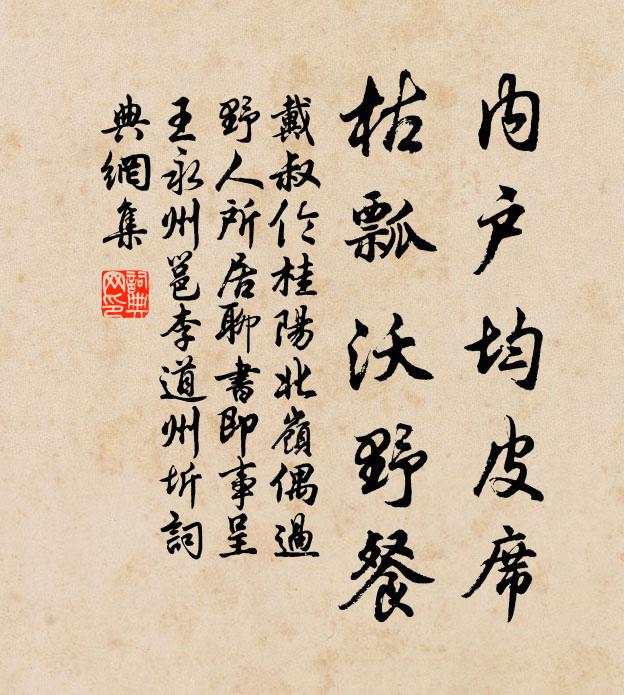 内户均皮席
枯瓢沃野餐
戴叔伦桂陽北嶺偶過
野人所居聊書即事呈
王永州邕李道州圻詞
典網集
詞典网印